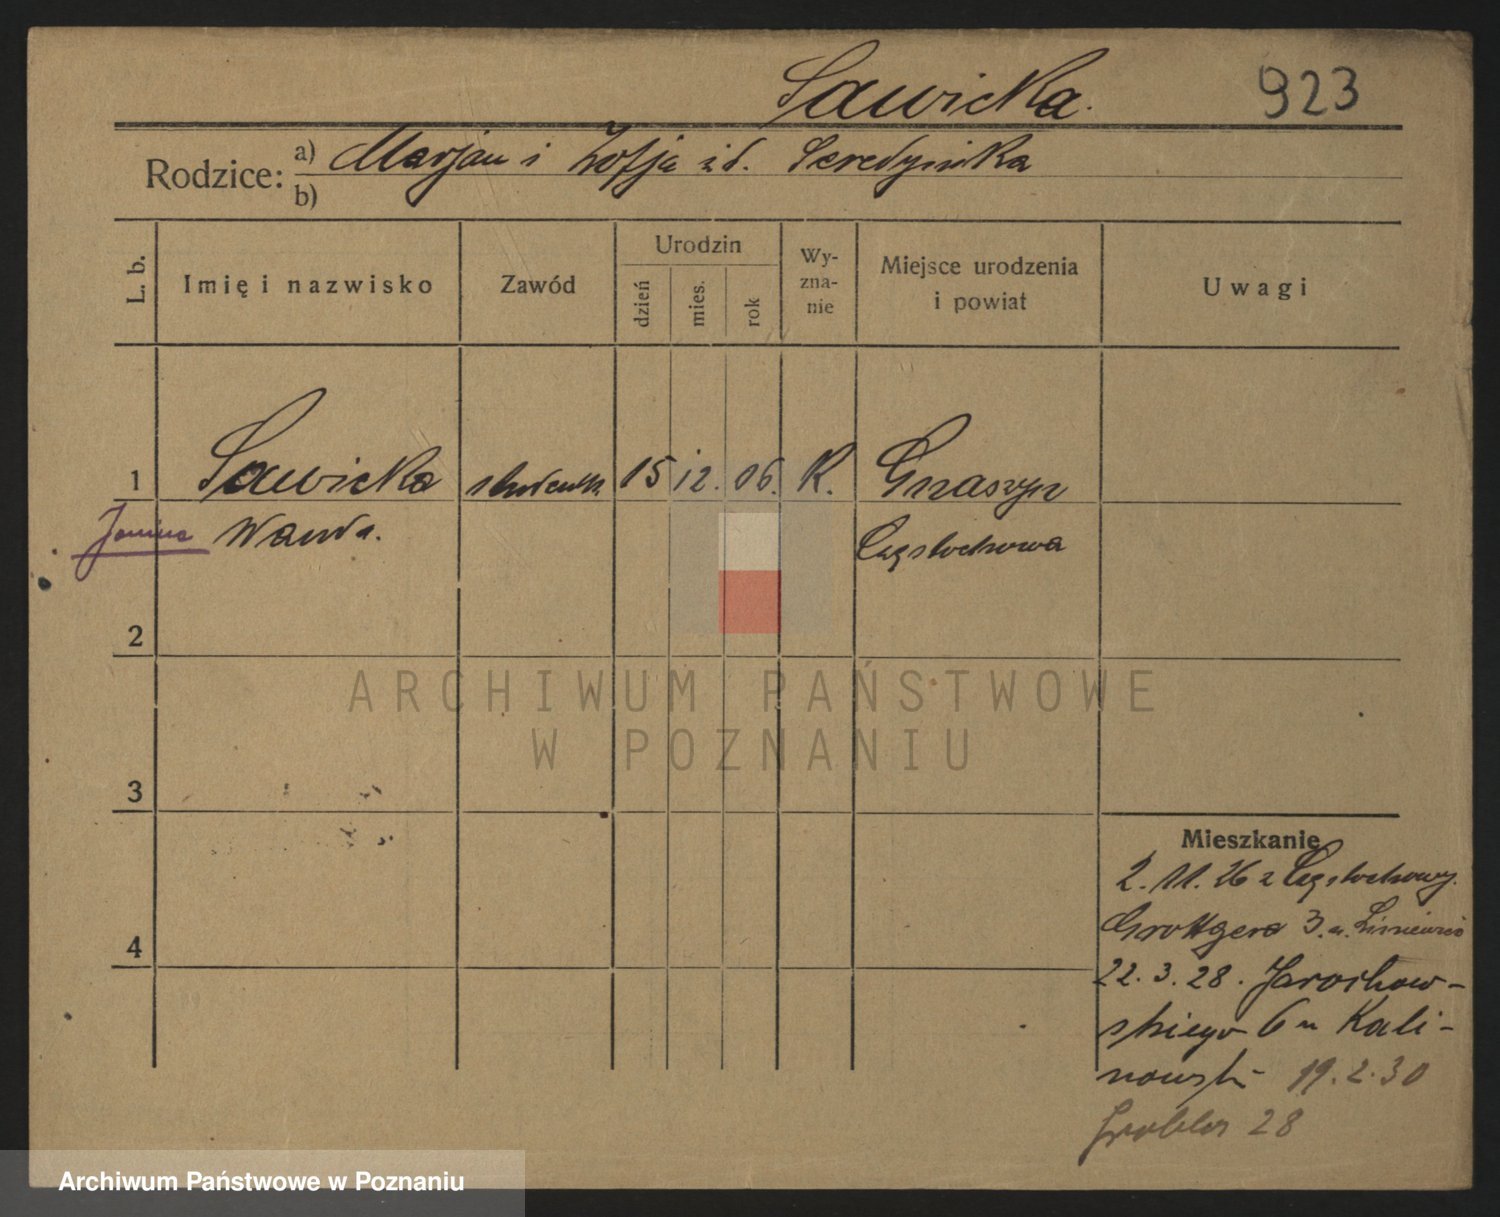 Sawicka.
923
Rodzice:
a) Marjan i Zofja z d. Seredyńska
b)
L. b.
Imię i nazwisko
Zawód
Urodzin
dzień
mies.
rok
Wy-
zna-
nie
Miejsce urodzenia
i powiat
Uwagi
1
Sawicka
15 12. 06. K. Gnaszyn
Janina Wanda.
Częstochowa
2
3
4
ARCHIWUM PAŃSTWOWE
W POZNANIU
Mieszkanie
2.11.26 z Częstochowy.
Grottgera 3
22.3.28. Jarochow-
skiego 6 u Kali-
nowsk 19.2.30
Grobla 28
Archiwum Państwowe w Poznaniu